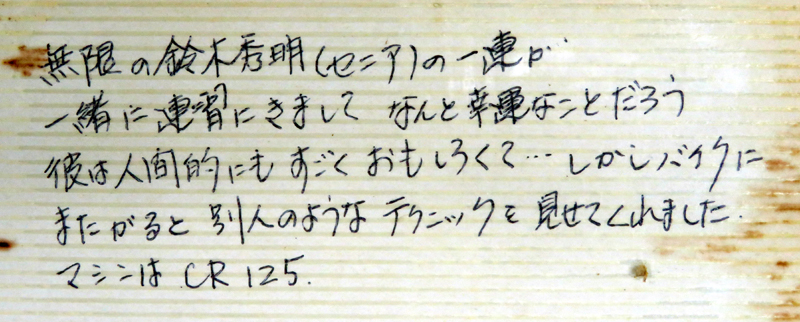 無限の鈴木秀明(セニア)の一連が
一緒に連習にきまして なんと幸運なことだろう
彼は人間的にもすごくおもしろくて… しかしバイクに
またがると 別人のような テクニックを 見せてくれました.
マシンは CR 125.